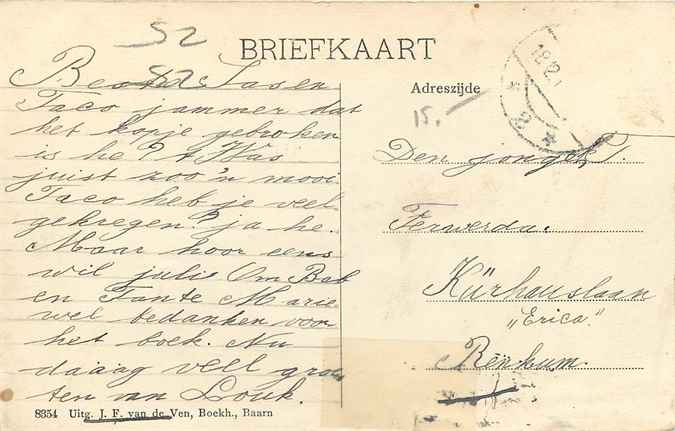 52
BRIEFKAART
Beord Sasen
Taco jammer dat
het kopje gebroken
is he? t Was
juist zoo'n mooi.
Taco heb je veel
gekregen? ja he.
Maar hoor eens
wil julie Om Bab
en Tante Marie
wel bedanken voor
het boek. Nu
daaag veel groe
ten van Louk.
8354 Uitg. J. F. van de Ven, Boekh., Baarn
Adreszijde
15.-
Den jongeh. T.
Ferwerda.
Kürhauslaan
„Erica"
Renkum.